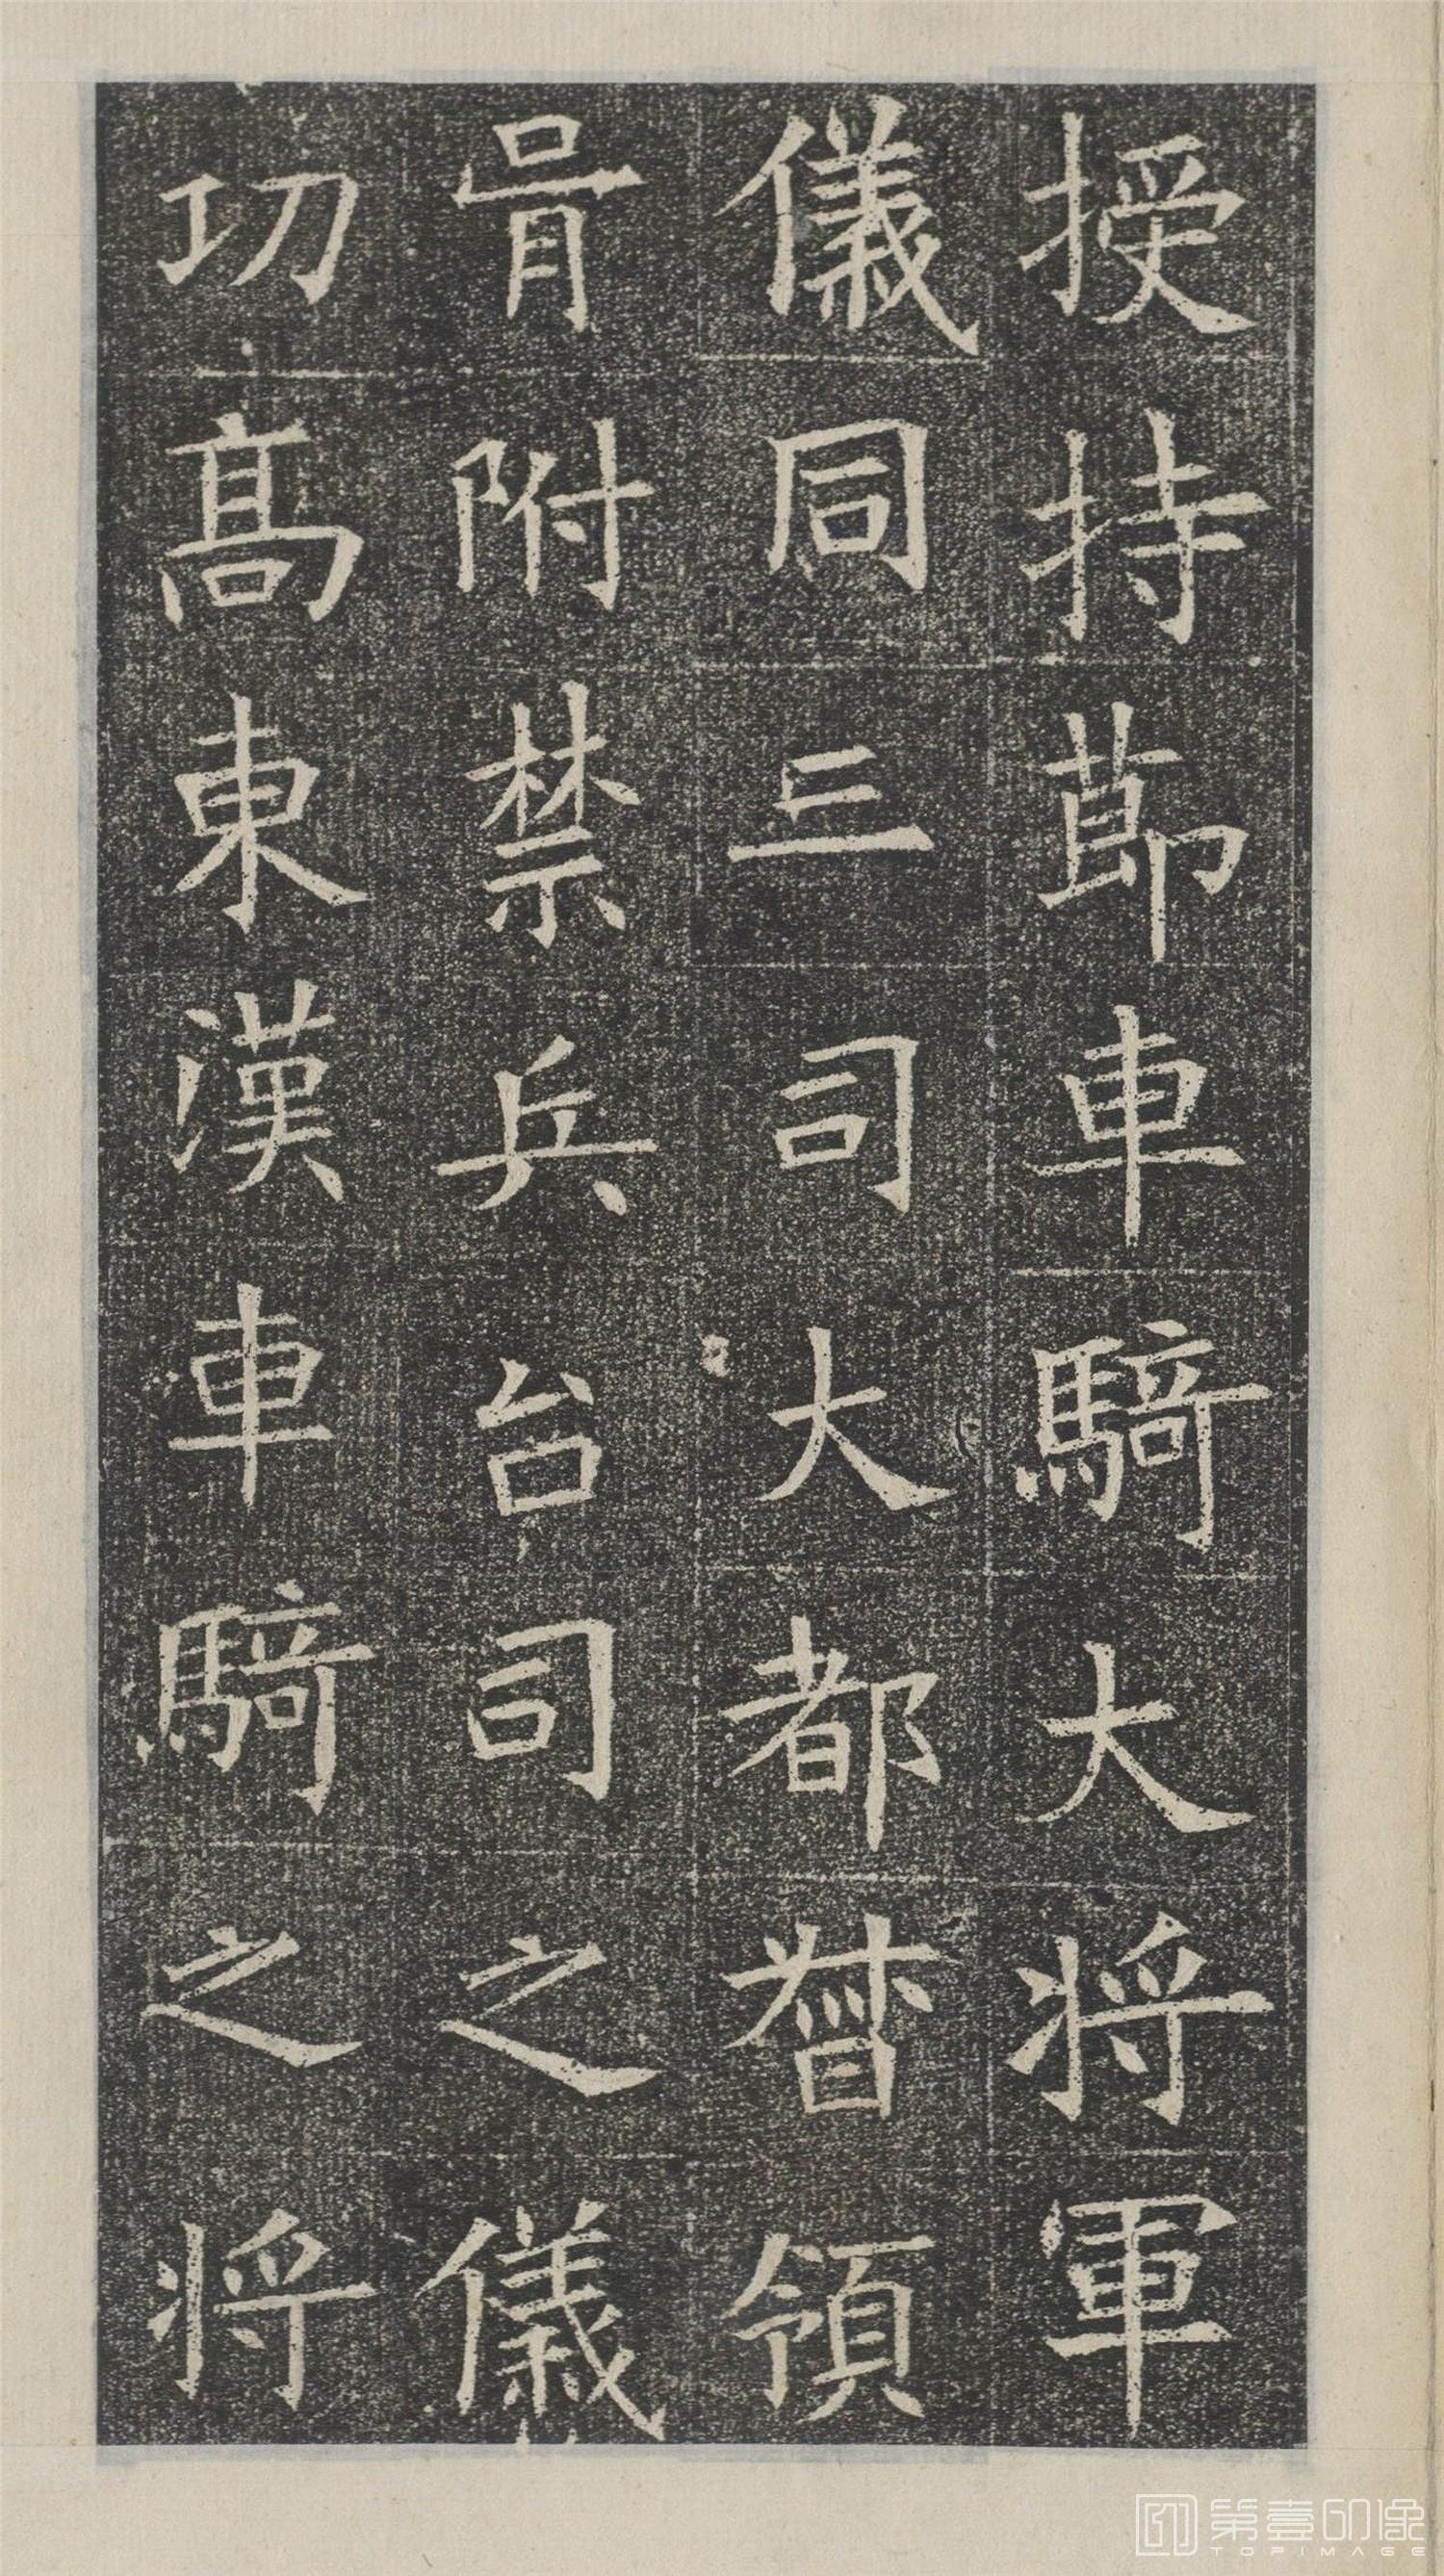 授持莭車騎大將軍
儀同三司大都督領
肙附禁兵台司之儀
功髙東漢車騎之將
第壹印像
TOPIMAGE